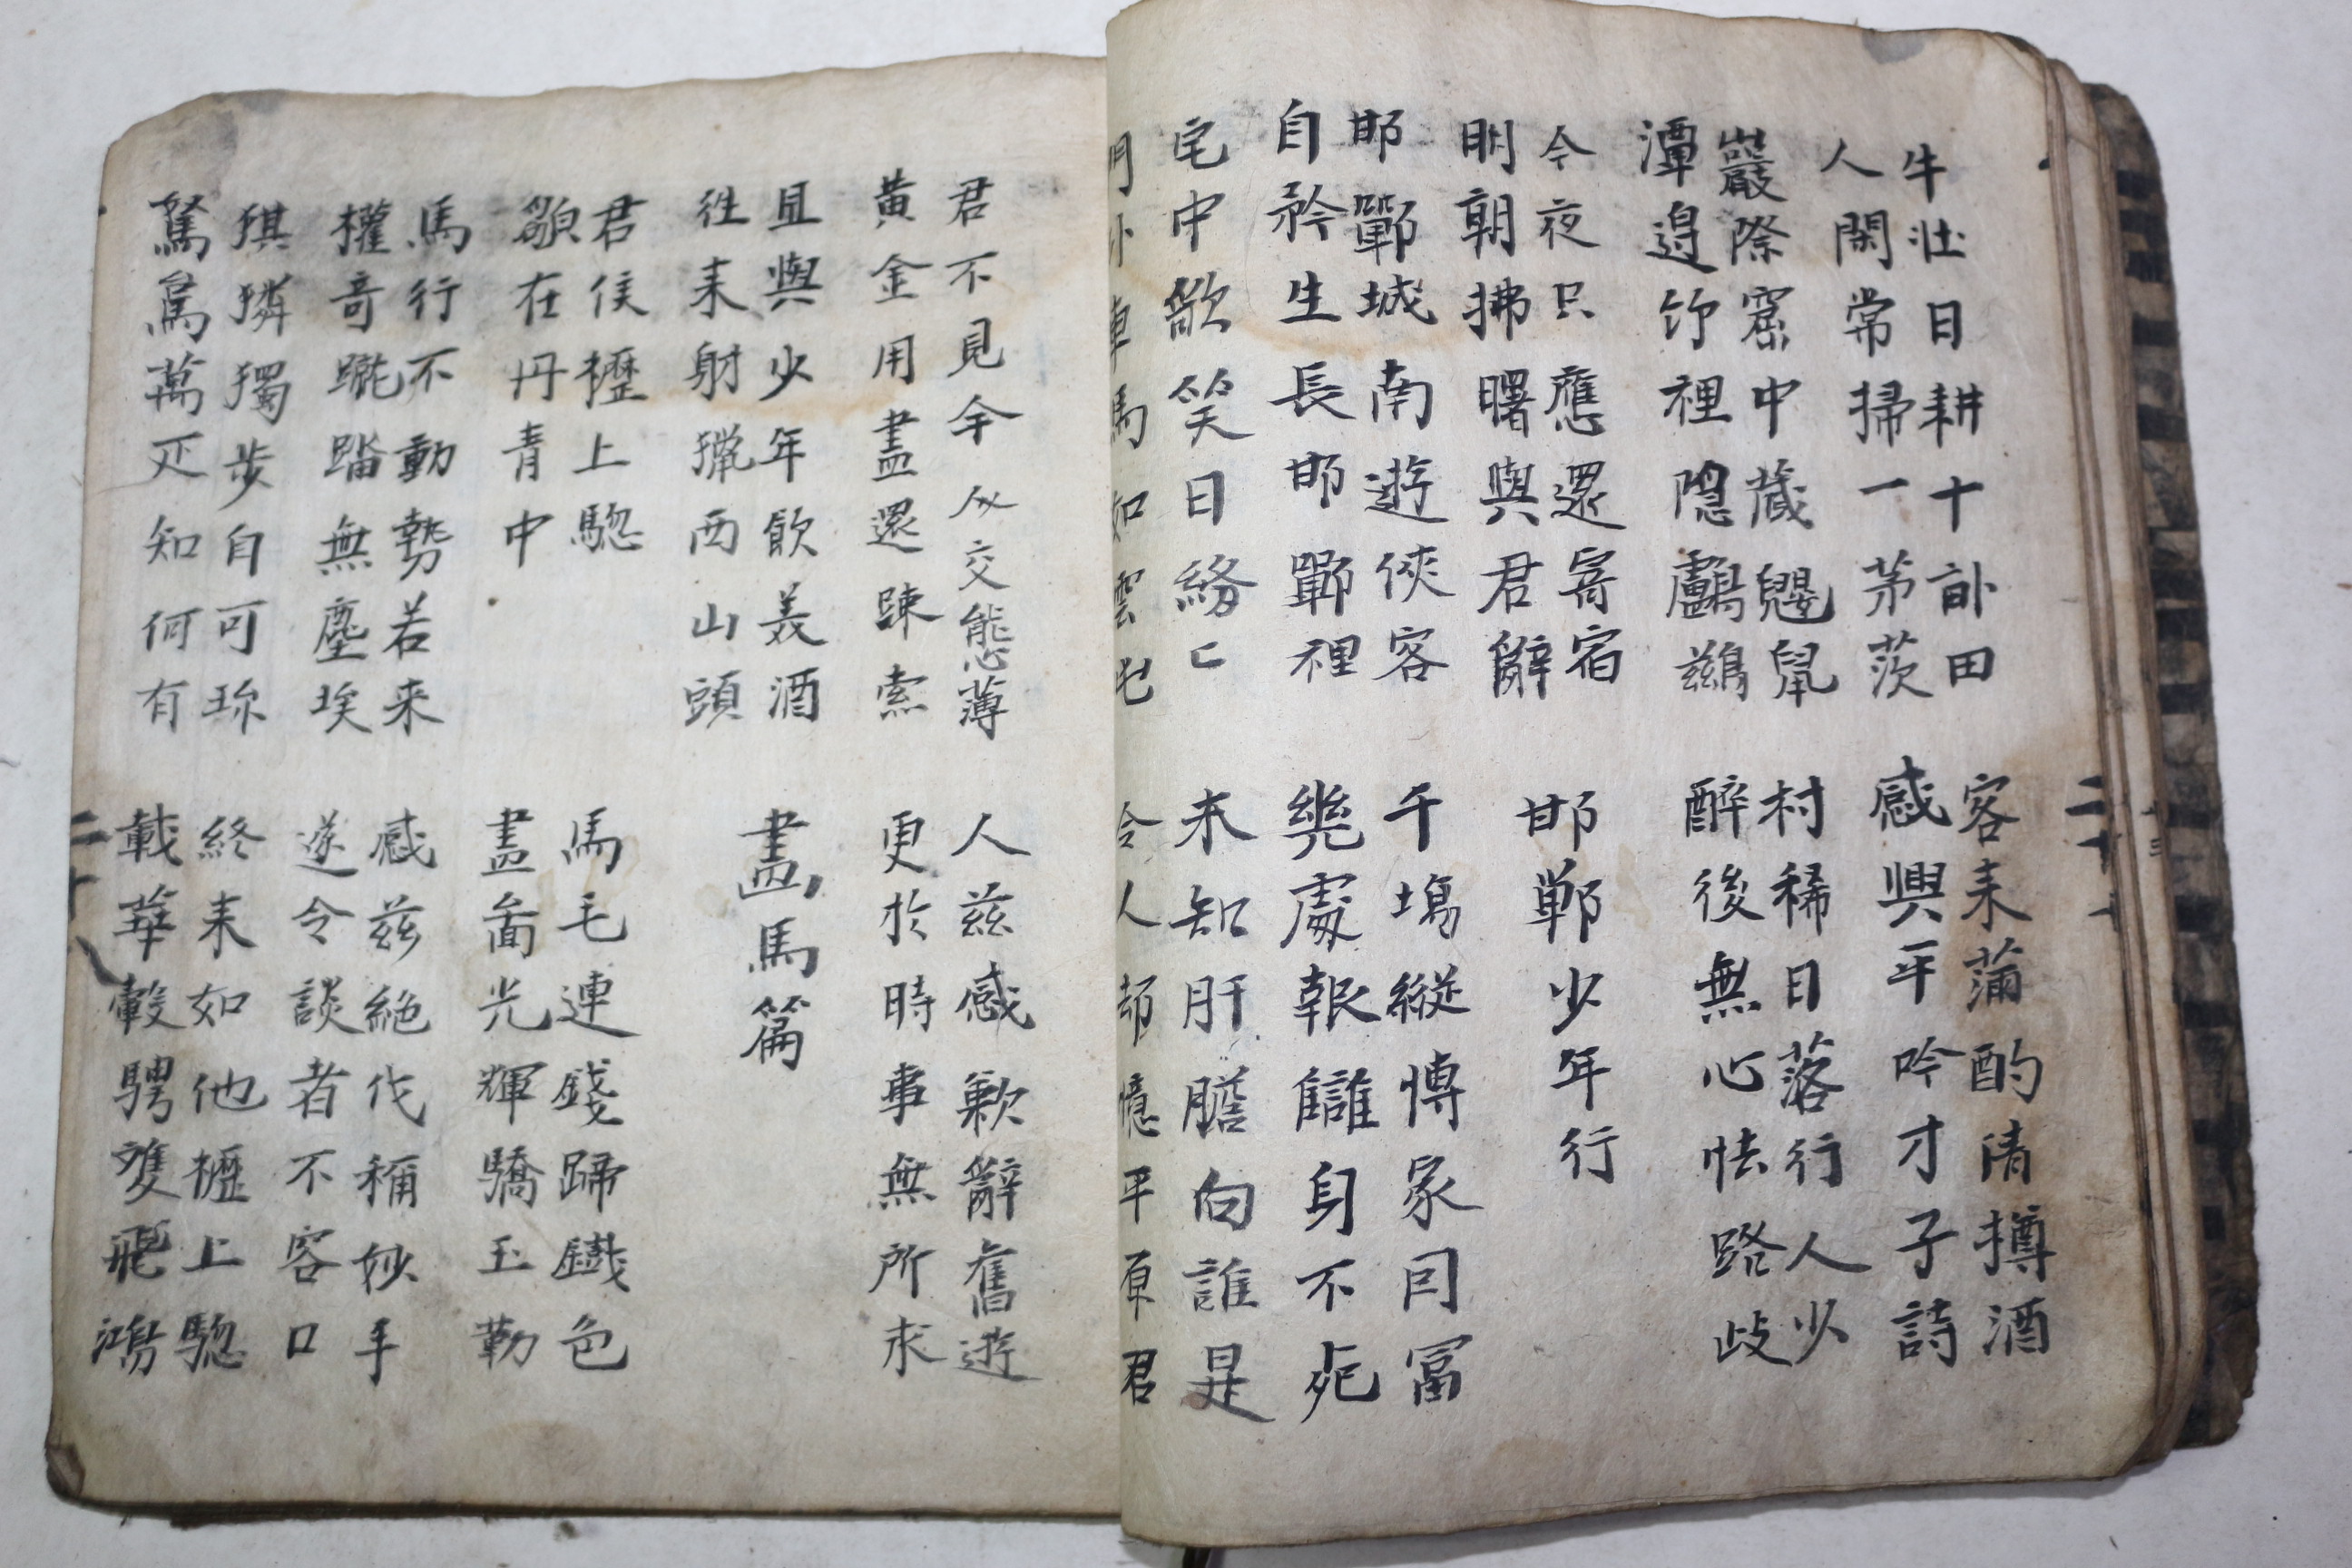 牛壯日耕十畝田
人閑常掃一茅茨
客来蒲酌清樽酒
感興平吟才子詩
巖際窟中藏鼴鼠
潭邉竹裡隱鸕鷀
村稀日落行人少
醉後無心怯路歧
今夜只應還寄宿
明朝拂曙與君辭
邯鄲少年行
邯鄲城南遊俠客
自矜生長邯鄲裡
千塲縱博家同冨
幾處報讎身不死
宅中歌笑日紛々
門外車馬如雲屯
未知肝膽向誰是
令人却憶平原君
君不見今人交態薄
黃金用盡還踈索
人兹感歎辭舊遊
更於時事無所求
且與少年飲美酒
往来射獵西山頭
畫馬篇
君侯櫪上驄
貌在丹青中
馬毛連錢蹄鐵色
畫啚光輝驕玉勒
馬行不動勢若来
權奇蹴踏無塵埃
感兹絕代稱妙手
遂令談者不容口
騏驎獨步自可珎
駑駘萬疋知何有
終未如他櫪上驄
載華轂騁雙飛鴻
二十八